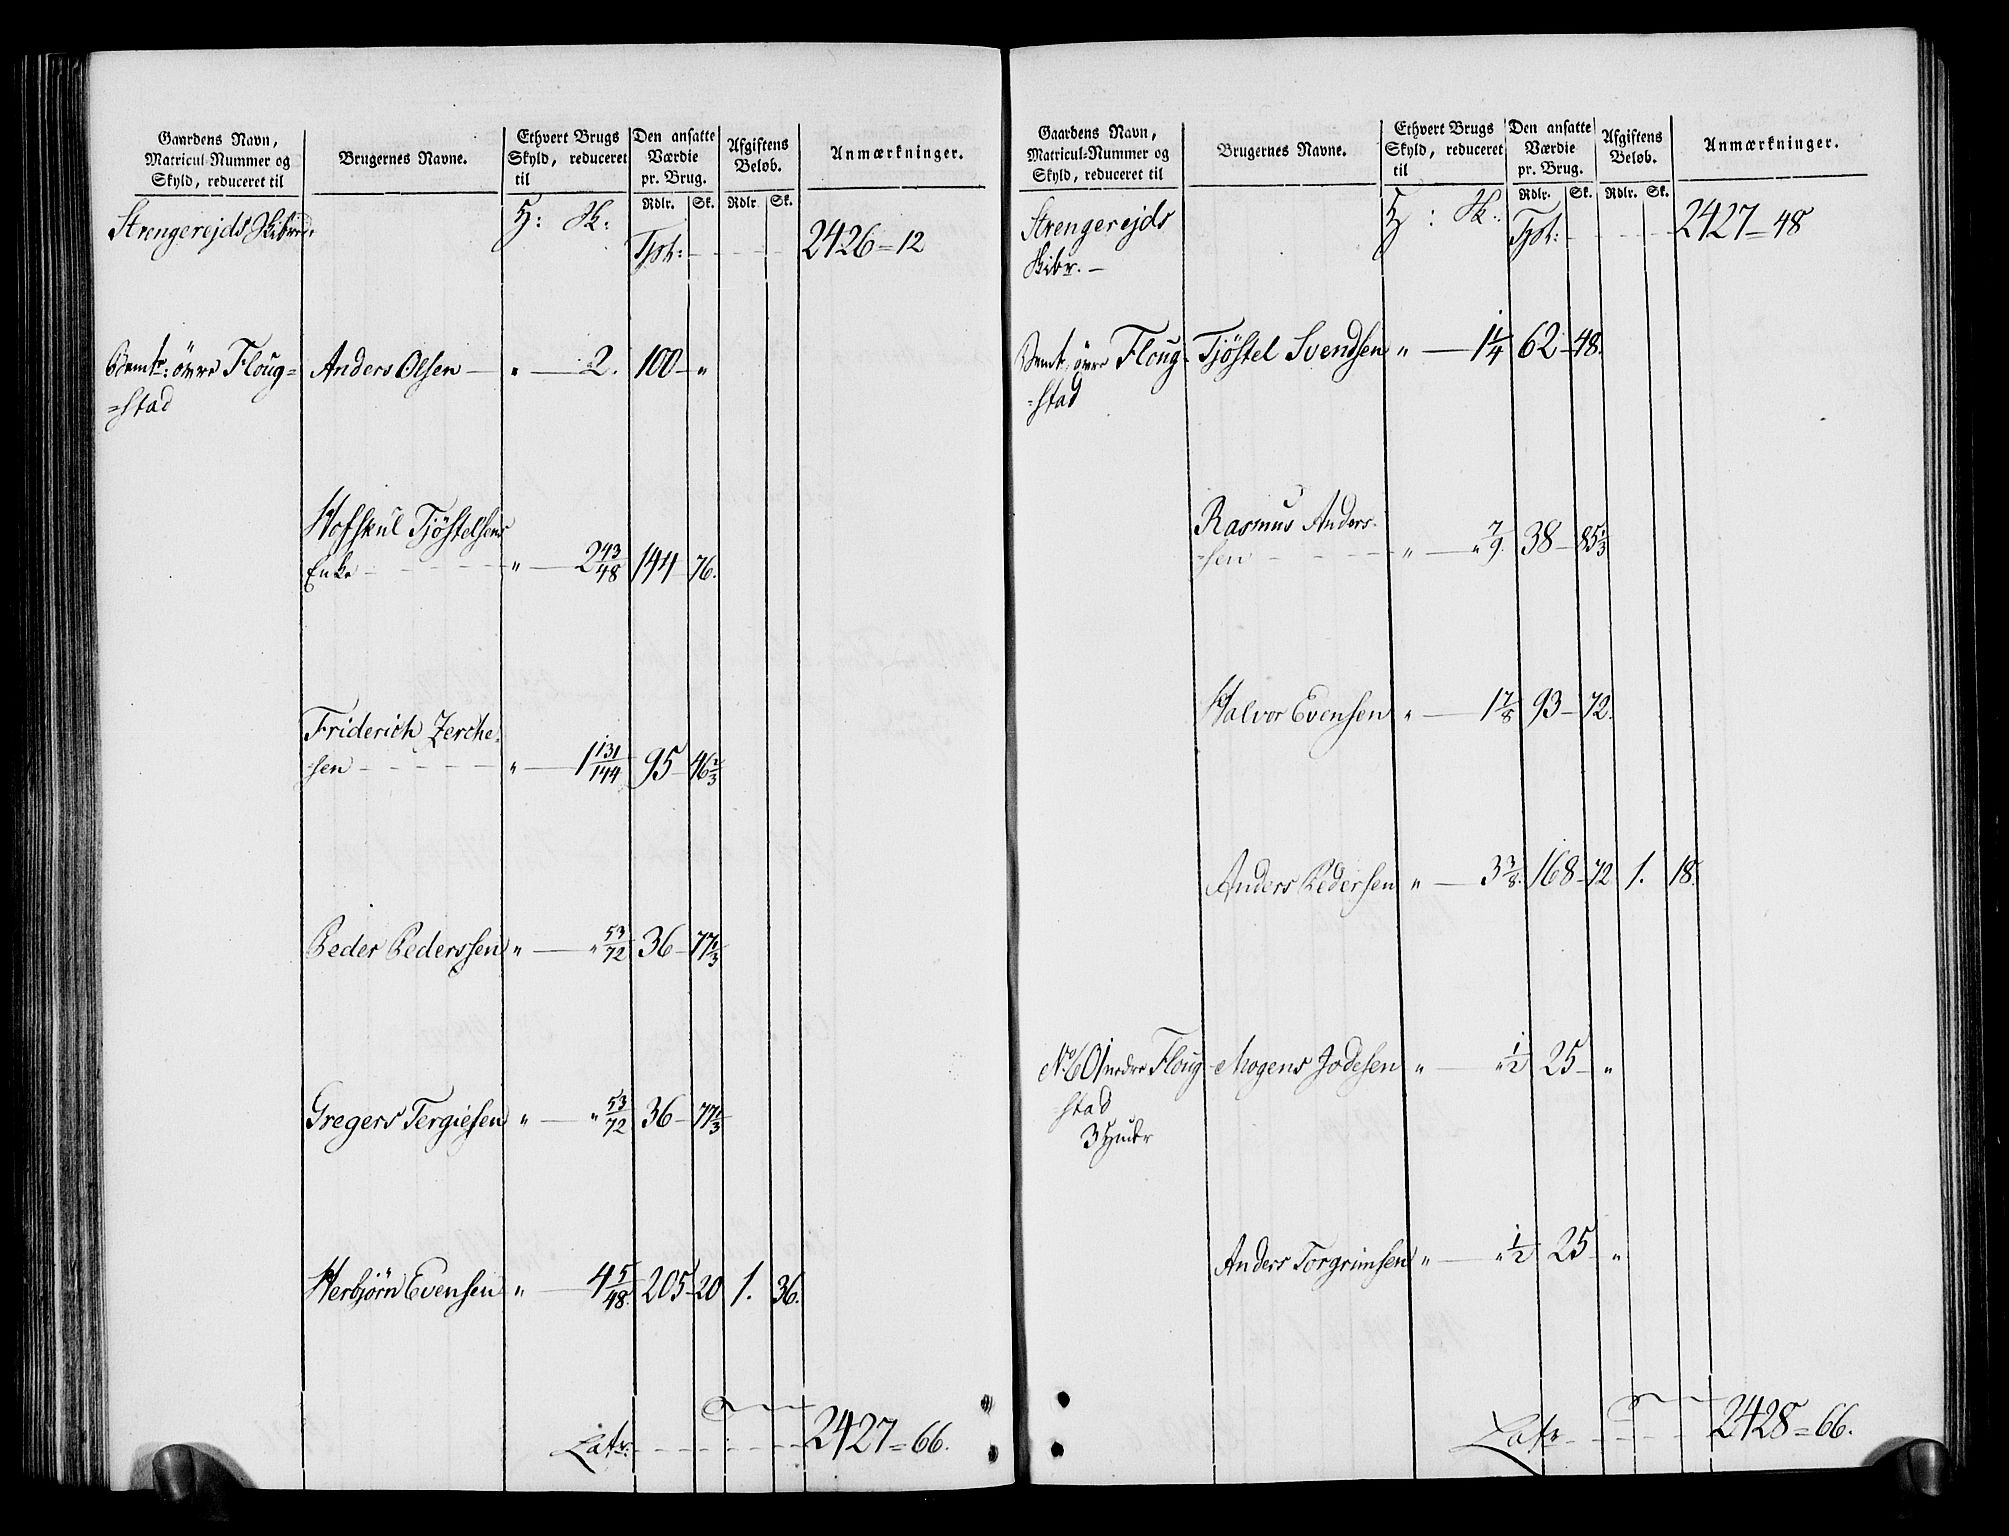 Gaardens Navn,
Matricul-Nummer og
Skyld, reduceret til
Brugernes Navne.
Ethvert Brugs
Skyld, reduceret
til
Den ansatte
Værdie
pr. Brug.
Rdlr. Sk.
Afgiftens
Beløb.
Rdlr. Sk.
Anmærkninger.
Strengerejds Skibred.
H: Sk:
Tpt: 2426=12
Bemte: övre Floug=
=stad
Anders Olsen — " — 2. 100 — "
Hofskul Tjöstelsens
Enke " — 2 43/48 144 — 76.
Friderich Zerche-
-sen " — 1 131/144 95 — 46 2/3
Peder Pederssen " — " 53/72 36 — 77 1/3
Gregers Tergiesen " — " 53/72 36 — 77 1/3
Herbjørn Evensen " — 4 5/48. 205 — 20 1. 36.
Latr: 2427=66.
Gaardens Navn,
Matricul-Nummer og
Skyld, reduceret til
Brugernes Navne.
Ethvert Brugs
Skyld, reduceret
til
Den ansatte
Værdie
pr. Brug.
Rdlr. Sk.
Afgiftens
Beløb.
Rdlr. Sk.
Anmærkninger.
Strengerejds
Skibr. —
H : Sk:
Tpt: 2427=48
Bemt. övre Floug-
=stad
Tjöstel Svendsen " — 1 1/4 62 — 48.
Rasmus Anders-
-sen " — " 7/9. 38 — 85 1/3
Halvor Evensen " — 1 7/8 93 — 72.
Anders Pedersen " — 3 3/8. 168 — 72 1. 18.
No 601 nedre Floug-
-stad
3 Huder
Mogens Jodesen " — " 1/2 25 — "
Anders Torgrimsen " — " 1/2 25 — "
Latr 2428=66.